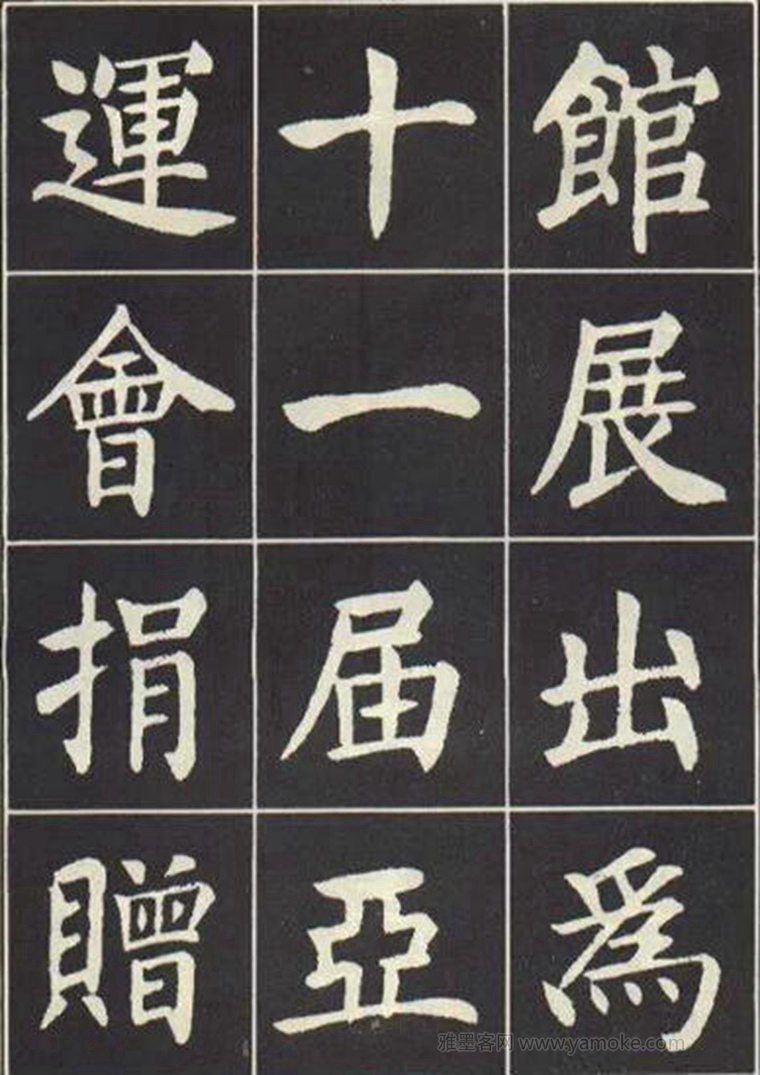 館展出爲
十一届亞
運會捐贈
雅墨客网 www.yamoke.com